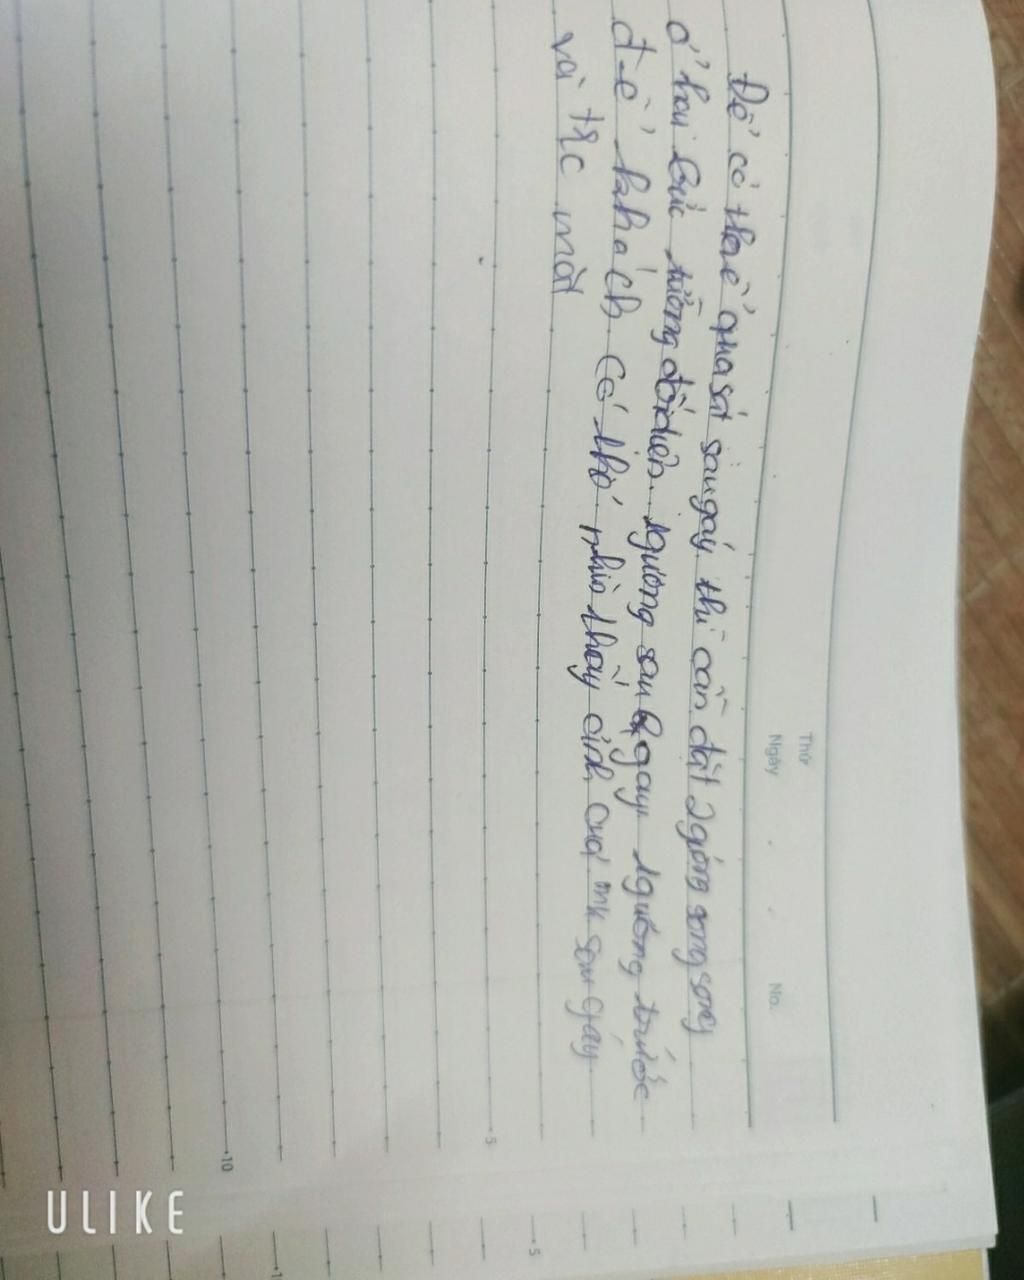 Thứ
Ngày
No.
Để có thể qua sát sau gáy thì cần đặt 2 gióng song song
ở hai bức tường đối diện. gương sau gay gương trước
để khách có thể nhìn thấy ảnh của mk sau gáy
và trc mặt
5
10
5
ULIKE